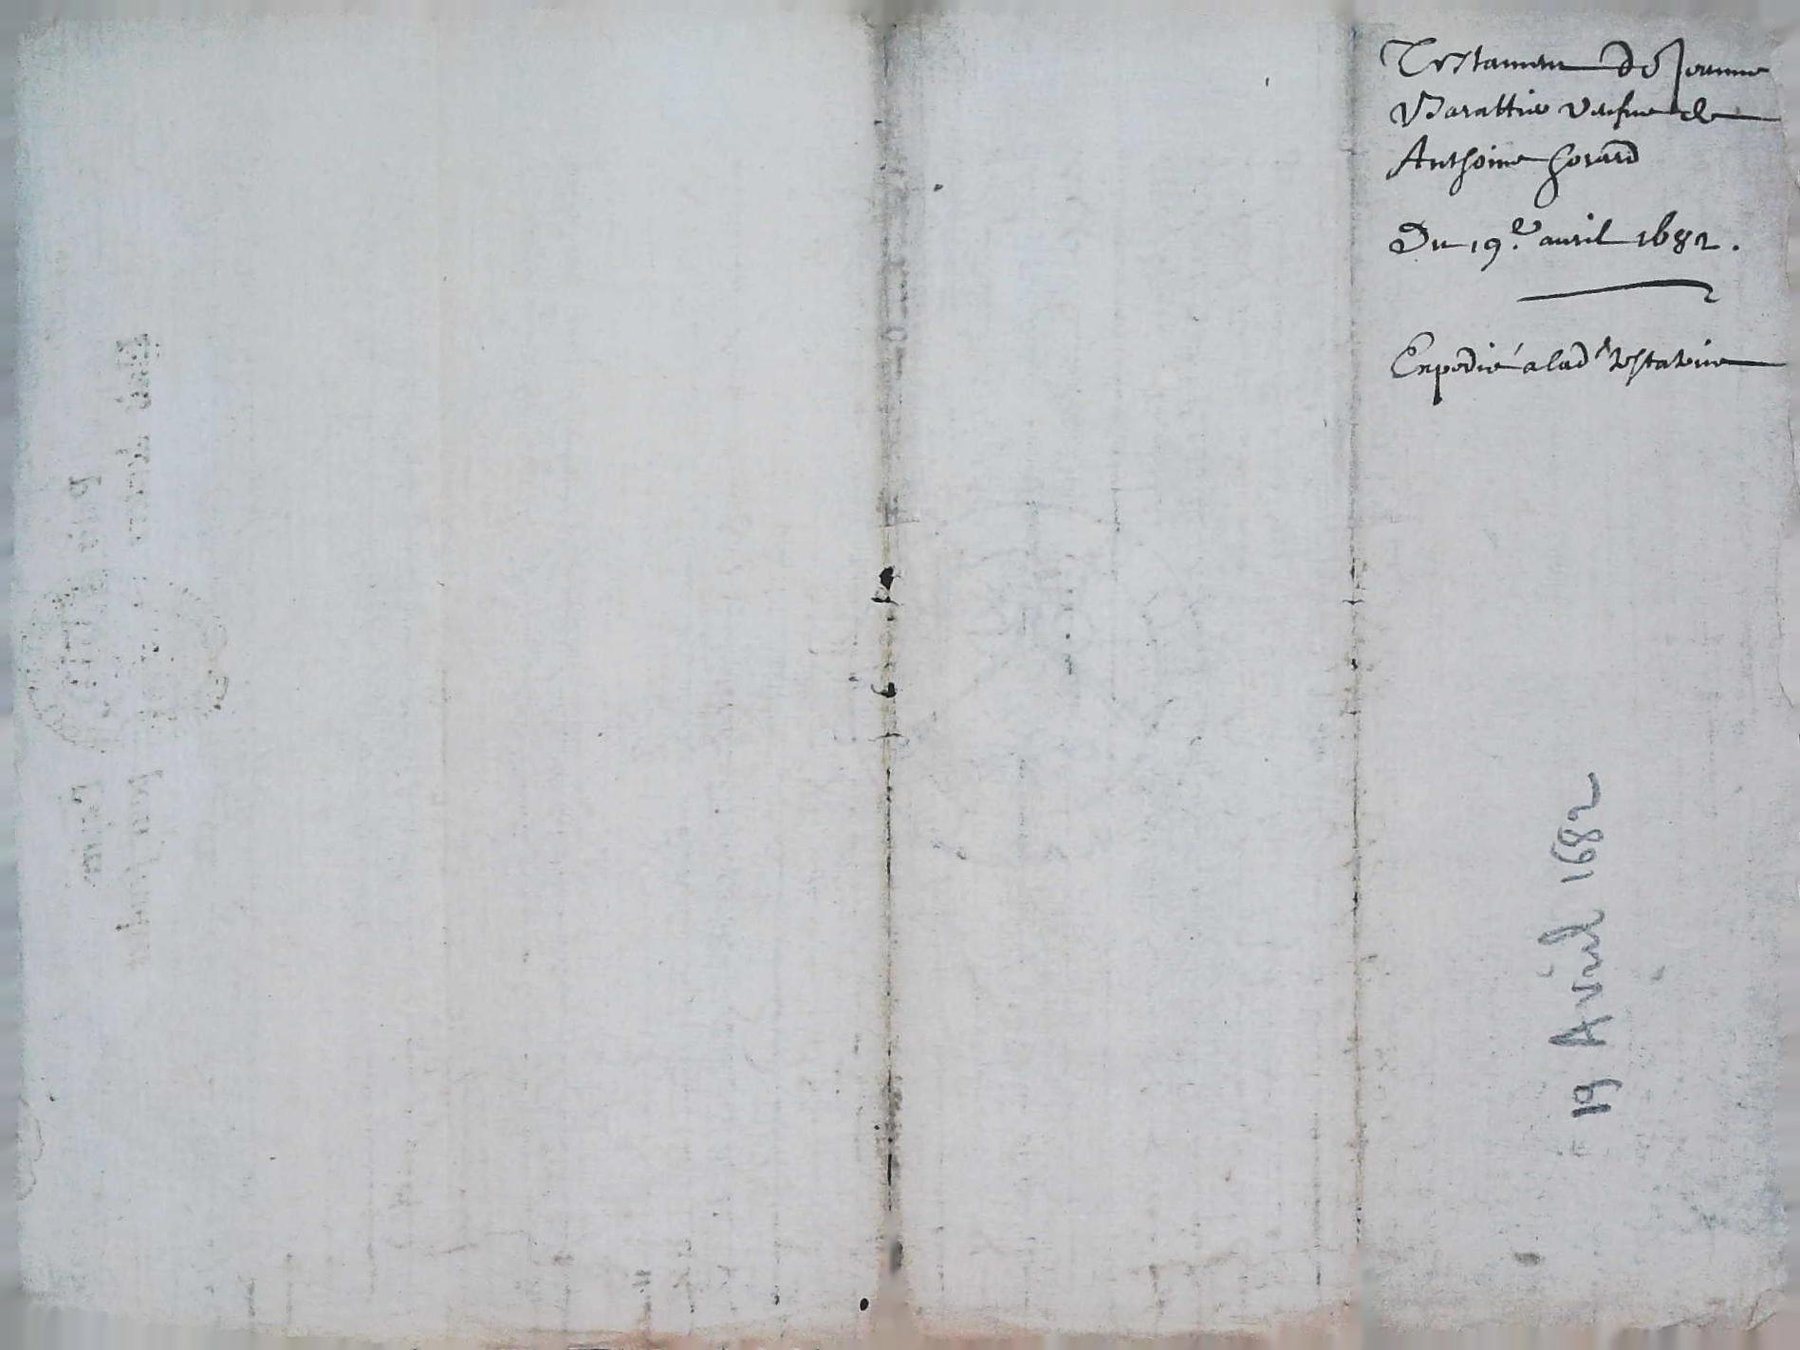 Testament de Jeanne
Barattier veufve de
Anthoine Gerard
Du 19.e auril 1682.
Expedié a lad.e testatrice
19 Avril 1682